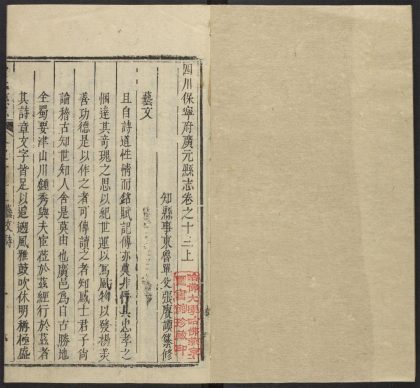 四川保寧府廣元縣志卷之十三上
知縣事東魯單父張賡謨纂修
藝文
且自詩道性情而銘賦記傳亦莫非行其忠孝之
個達其奇瑰之思以紀世運以寫風物以發揚美
善功德是以作之者可傳讀之者知感士君子尚
論稽古知世知人舍是莫由也廣邑為自古勝地
全蜀要津山川鍾秀與夫宦茲於茲經行於茲者
其詩章文字皆足以追趨風雅鼓吹休明猗極盛
哈佛大學哈佛燕京
圖書館珍藏印